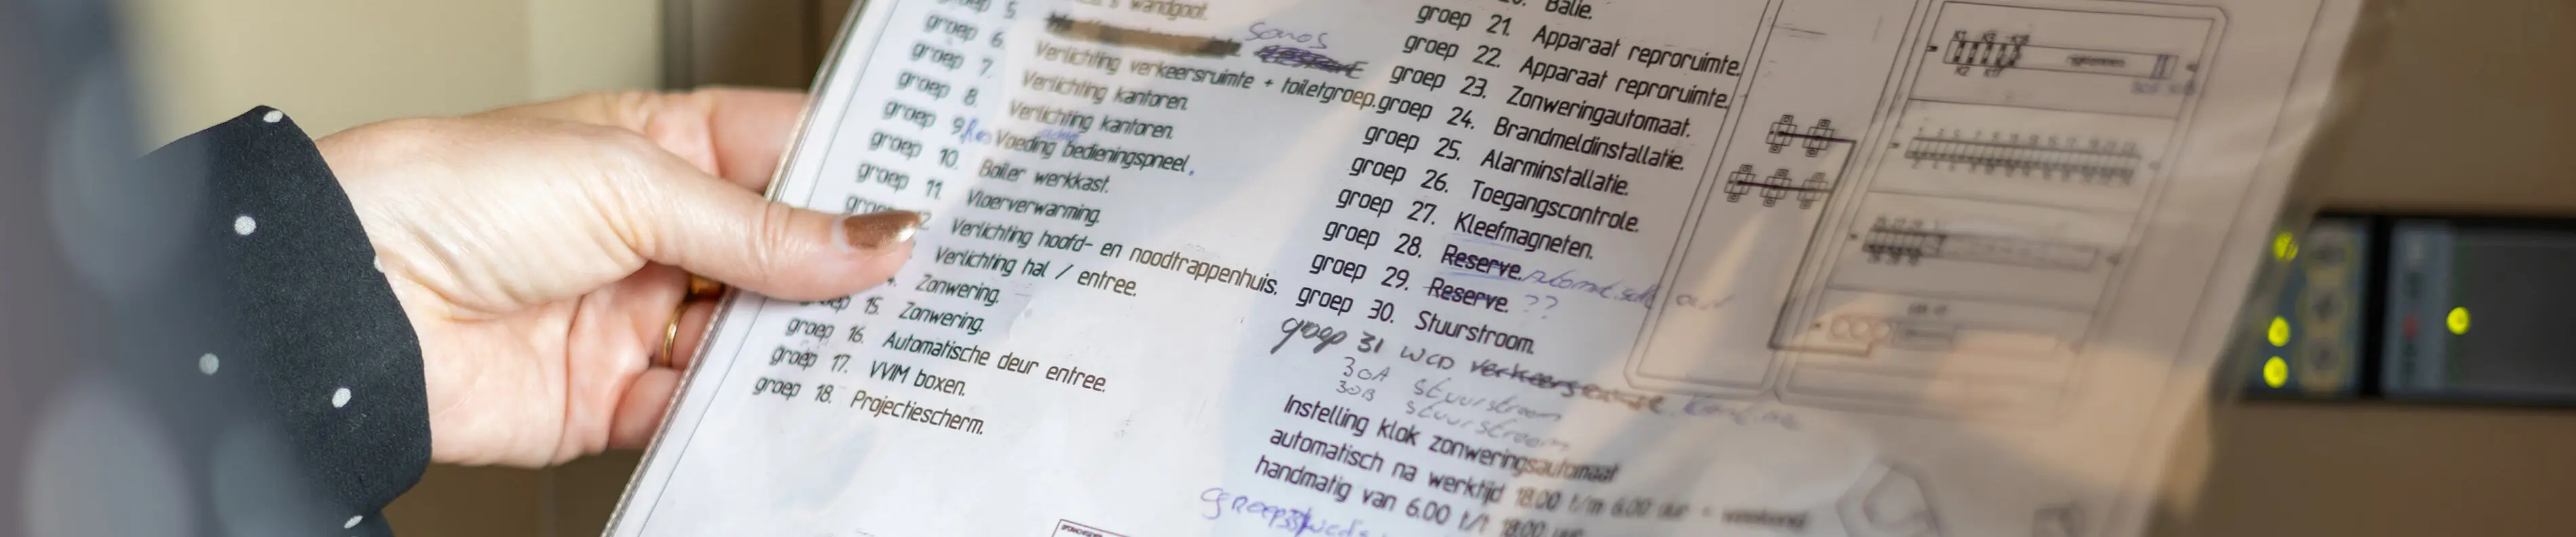 groep 5. wandgoot.
groep 6. Sonos
groep 7. Verlichting verkeersruimte + toiletgroep.
groep 8. Verlichting kantoren.
groep 9. Verlichting kantoren.
groep 10. Voeding bedieningspneel.
groep 11. Boiler werkkast.
Vloerverwarming.
Verlichting hoofd- en noodtrappenhuis.
Verlichting hal / entree.
Zonwering.
groep 15. Zonwering.
groep 16. Automatische deur entree.
groep 17. VVIM boxen.
groep 18. Projectiescherm.
Balie.
groep 21. Apparaat reproruimte.
groep 22. Apparaat reproruimte.
groep 23. Zonweringautomaat.
groep 24. Brandmeldinstallatie.
groep 25. Alarminstallatie.
groep 26. Toegangscontrole.
groep 27. Kleefmagneten.
groep 28. Reserve.
groep 29. Reserve. ??
groep 30. Stuurstroom.
groep 31 WCD
30A stuurstroom
30B stuurstroom
Instelling klok zonweringsautomaat
automatisch na werktijd 18.00 t/m 6.00 uur + weekend
handmatig van 6.00 t/t 18.00 uur